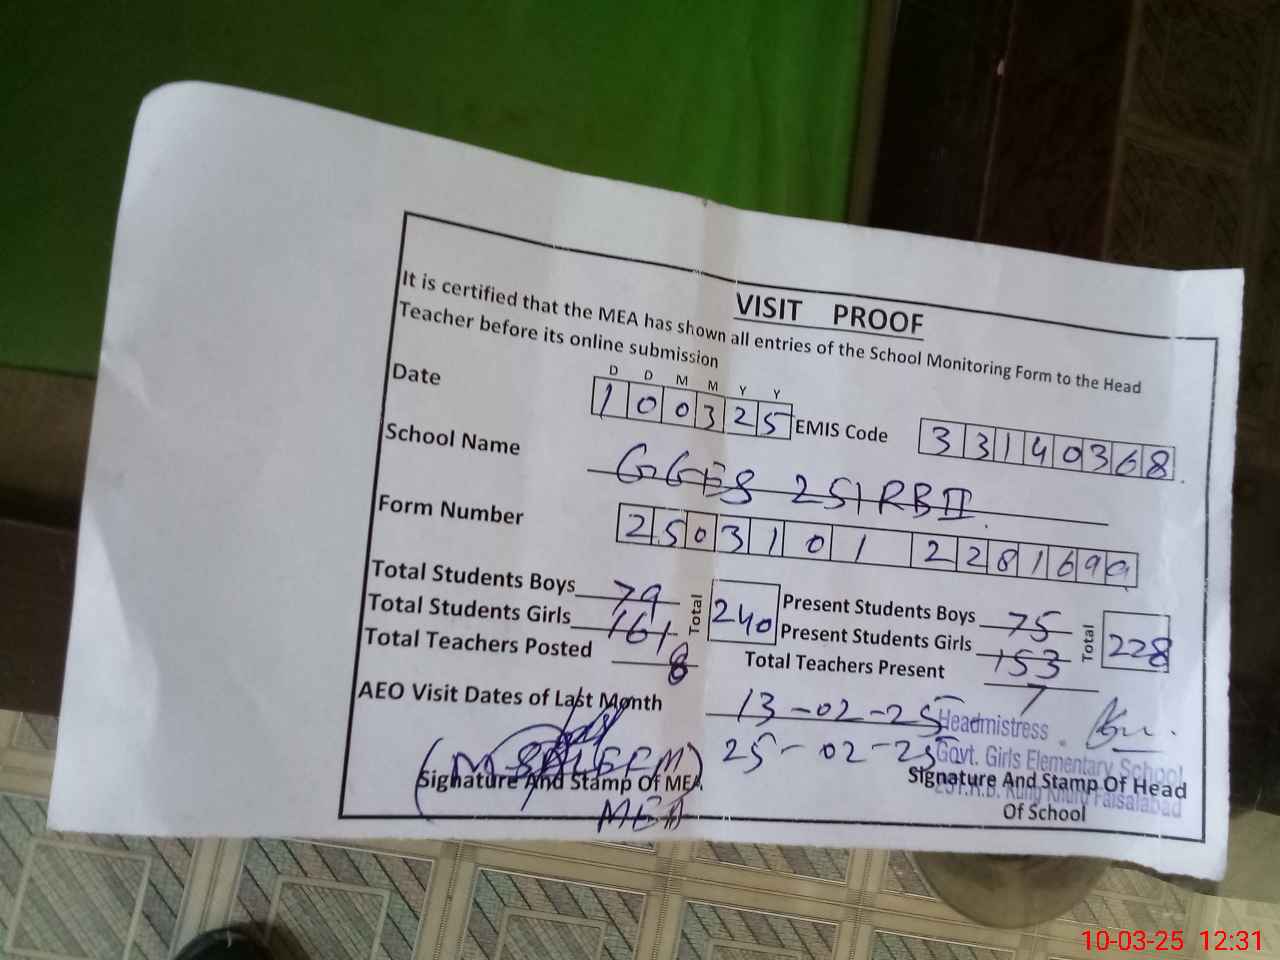 VISIT PROOF
It is certified that the MEA has shown all entries of the School Monitoring Form to the Head
Teacher before its online submission
D D M M Y Y
Date 1 0 0 3 2 5 EMIS Code 3 3 1 4 0 3 6 8
School Name GGES 251 RB II
Form Number 2 5 0 3 1 0 1 2 2 8 1 6 9 9
Total Students Boys 79 Total 240 Present Students Boys 75 Total 228
Total Students Girls 161 Present Students Girls 153
Total Teachers Posted 8 Total Teachers Present 7
AEO Visit Dates of Last Month 13-02-25
25-02-25
Headmistress
Govt. Girls Elementary School
251.R.B. Faisalabad
(M SALEEM)
Signature And Stamp Of MEA
MEA
Signature And Stamp Of Head
Of School
10-03-25 12:31